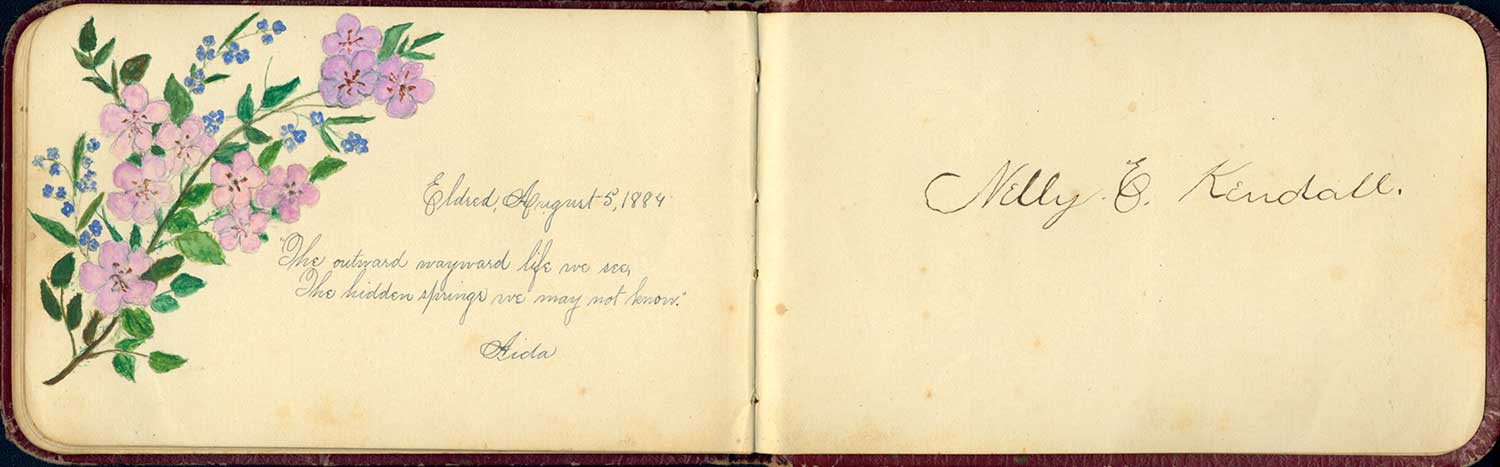 Eldred, August 5, 1884
"The outward wayward life we see,
The hidden springs we may not know."
Aida
Nelly E. Kendall.